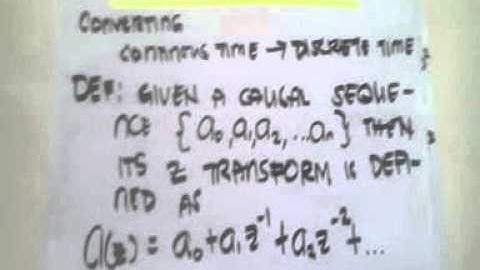 CONVERTING
CONTINOUS TIME → DISCRETE TIME ;
DEF: GIVEN A CAUSAL SEQUE-
NCE {a₀,a₁,a₂, ...aₙ} THEN,
ITS Z TRANSFORM IS DEFI-
NED AS
a(z) = a₀+a₁z⁻¹+a₂z⁻²+...